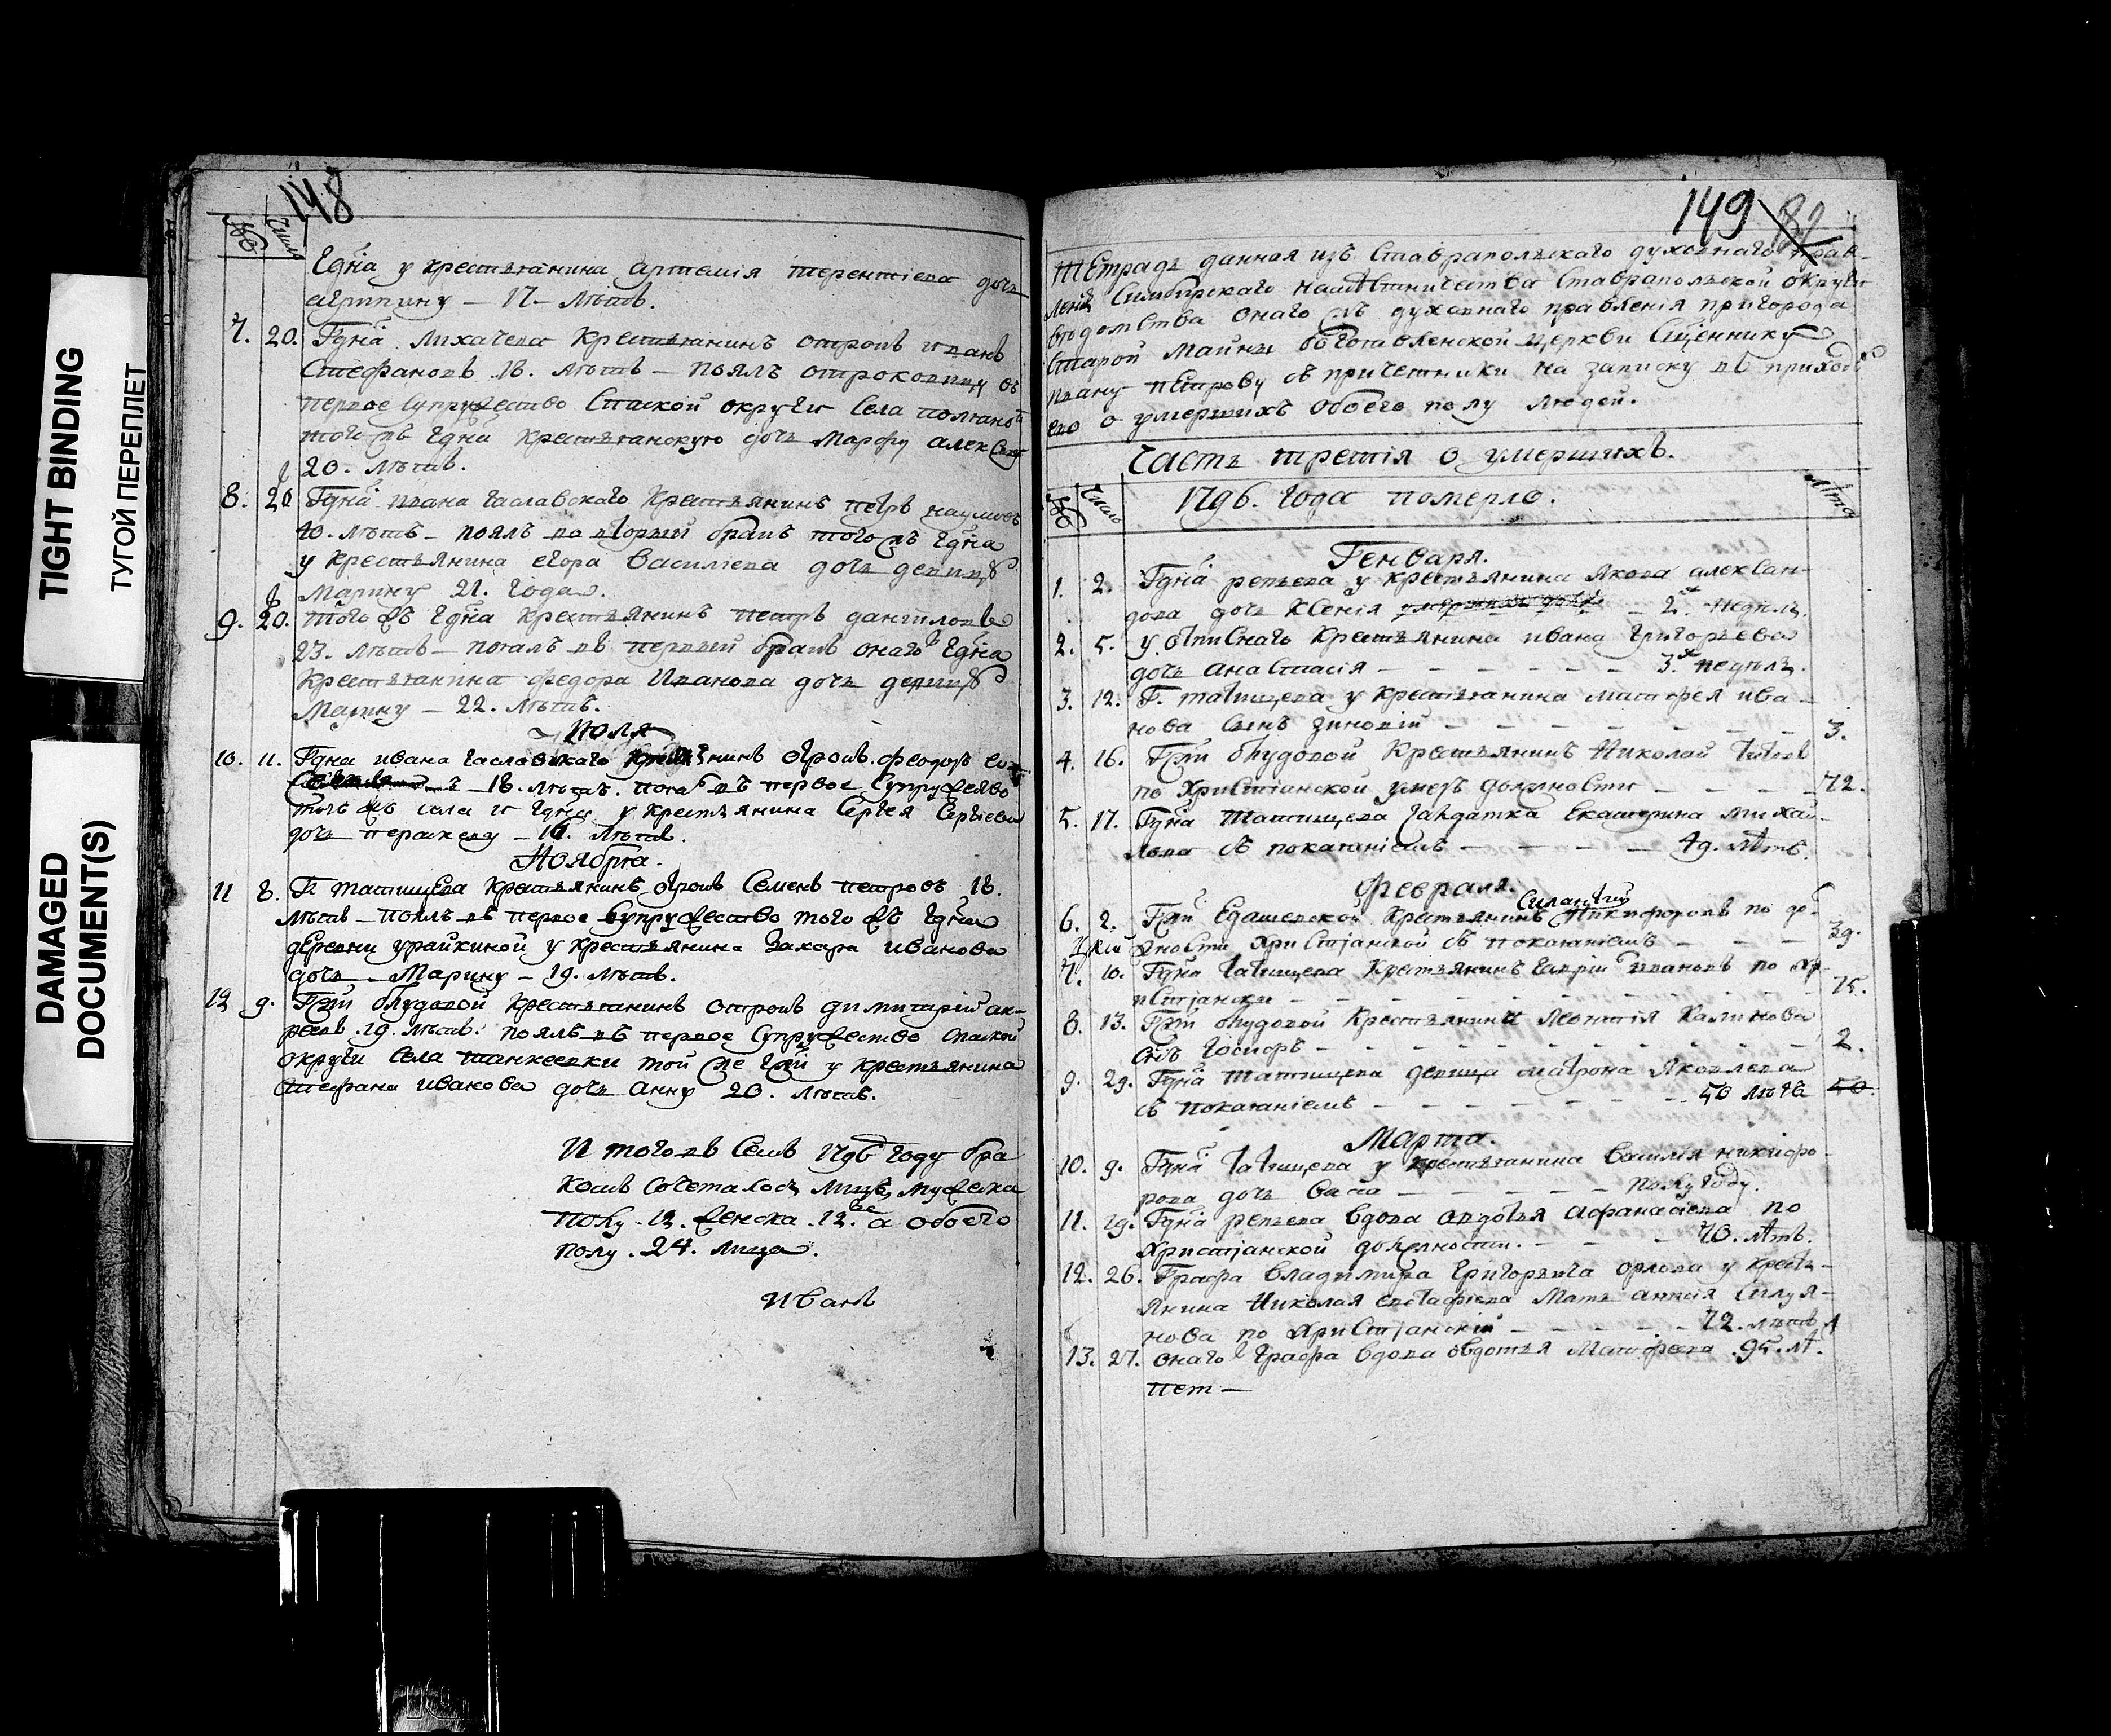 TIGHT BINDING
ТУГОЙ ПЕРЕПЛЕТ
DAMAGED
DOCUMENT(S)
148
№ число
Гдна у крестьянина артемія терентіева дочь
агрипину — 17 — лѣтъ.
7. 20. Гдна Лихачева крестьянинъ отрокъ иванъ
Стефановъ 18. лѣтъ — поялъ отроковицу въ
первое супружество Спаской округи села полянок
того жъ Гдна крестьянскую дочь Марфу
20. лѣтъ.
8. 20 Гдна ивана крестьянинъ петръ наумовъ
40. лѣтъ — поялъ во вторый бракъ того жъ Гдна
у крестьянина егора Василіева дочь девицу
Марину 21. года.
9. 20. того жъ Гдна крестьянинъ петръ даниловъ
23. лѣтъ — поялъ въ первый бракъ онаго Гдна
крестьянина федора Иванова дочь девицу
Марину — 22. лѣтъ.
Июля
10. 11. Гдна ивана отрокъ феодоръ
18. лѣтъ. поялъ въ первое супружество
тогъ жъ села и Гдна у крестьянина Сергея Сергіева
дочь — 16. лѣтъ.
Ноября.
11 8. Г. татищева крестьянинъ отрокъ Семенъ петровъ 18.
лѣтъ — поялъ въ первое супружество того жъ Гдна
деревни урайкиной у крестьянина Захара иванова
дочь — Марину — 19. лѣтъ.
12 9. Гжи блудовой крестьянинъ отрокъ димитрій ан-
реевъ .19. лѣтъ. поялъ въ первое супружество спаской
округи села танкеевки той же Гжи у крестьянина
Стефана иванова дочь анну 20. лѣтъ.
И того въ семъ 1796 году бра
комъ сочеталось лицъ, мужеска
полу .12. женска .12. а обоего
полу .24. лица.
Иванъ
149 82
Тетрадь данная изъ Ставрапольскаго духовнаго прав-
ленія Симбирскаго намѣстничества Ставрапольской округи
вѣдомства онаго жъ духовнаго правленія пригорода
старой Майны богоявленской церкви Сщеннику
ивану петрову съ причетники на записку въ приходѣ
ево о умершихъ обоего полу людей.
Часть третія о умершихъ.
№ число 1796. года померло. лѣта
Генваря.
1. 2. Гдна репьева у крестьянина Якова алексан-
дова дочь Ксенія — 2х недѣль.
2. 5. у отписнаго крестьянина ивана григорьева
дочь анастасія — 3х недѣль.
3. 12. Г. татищева у крестьянина матфея ива-
нова сынъ зиновій — 3.
4. 16. Гжи блудовой крестьянинъ Николай титовъ
по христіанской умеръ должности — 72.
5. 17. Гдна Татищева салдатка Екатерина михаи-
лова съ покаяніемъ — 49. лѣтъ.
Февраля.
6. 2. Гжи Едашевской крестьянинъ Силантій Никифоровъ по до-
лжности христіанской съ покаяніемъ — 39.
7. 10. Гдна татищева крестьянинъ гаврій ивановъ по хр-
истіански — 75.
8. 13. Гжи блудовой крестьянина леонтія Калинова
сынъ іосифъ — 2.
9. 29. Гдна татищева девица матрона Яковлева
съ покаяніемъ — 50 лѣтъ 50.
Марта.
10. 9. Гдна татищева у крестьянина Василія никифо-
рова дочь васа — полугоду.
11. 19. Гдна репьева вдова авдотья афанасіева по
христіанской должности. — 70. лѣтъ.
12. 26. Графа Владимира Григорьевича орлова у кресть-
янина Николая евстафіева Мать анисія Силуя-
нова по христіански — 72. лѣтъ
13. 27. онаго Графа вдова овдотья Матфеева .95. лѣ.
пет —